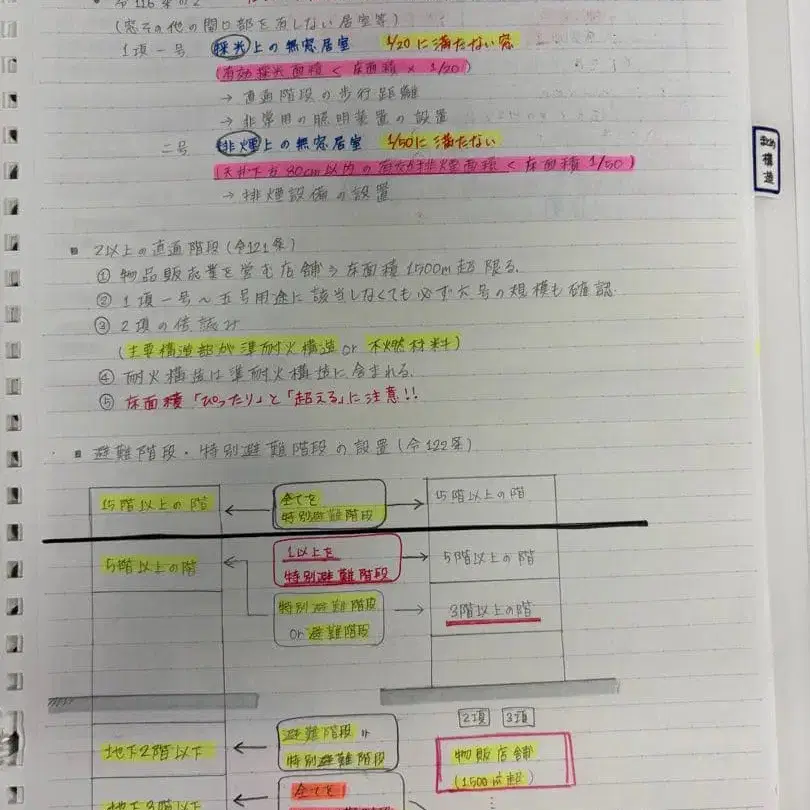 令116条の2
(窓その他の開口部を有しない居室等)
1項一号 採光上の無窓居室 1/20に満たない窓
(有効採光面積 < 床面積 × 1/20)
→ 直通階段の歩行距離
→ 非常用の照明装置の設置
二号 排煙上の無窓居室 1/50に満たない
(天井下方80cm以内の有効排煙面積 < 床面積 1/50)
→ 排煙設備の設置
構造
2以上の直通階段(令121条)
① 物品販売業を営む店舗→床面積1500㎡超限る.
② 1項一号〜五号用途に該当しなくても必ず六号の規模も確認.
③ 2項の倍読み
(主要構造部が準耐火構造 or 不燃材料)
④ 耐火構造は準耐火構造に含まれる.
⑤ 床面積「ぴったり」と「超える」に注意!!
避難階段・特別避難階段の設置(令122条)
15階以上の階 ← 全てを 特別避難階段 → 15階以上の階
5階以上の階 ← 1以上を 特別避難階段 → 5階以上の階
特別避難階段 or 避難階段 → 3階以上の階
2項 3項
地下2階以下 ← 避難階段 or 特別避難階段
物販店舗
(1500㎡超)
地下3階以下 ← 全てを